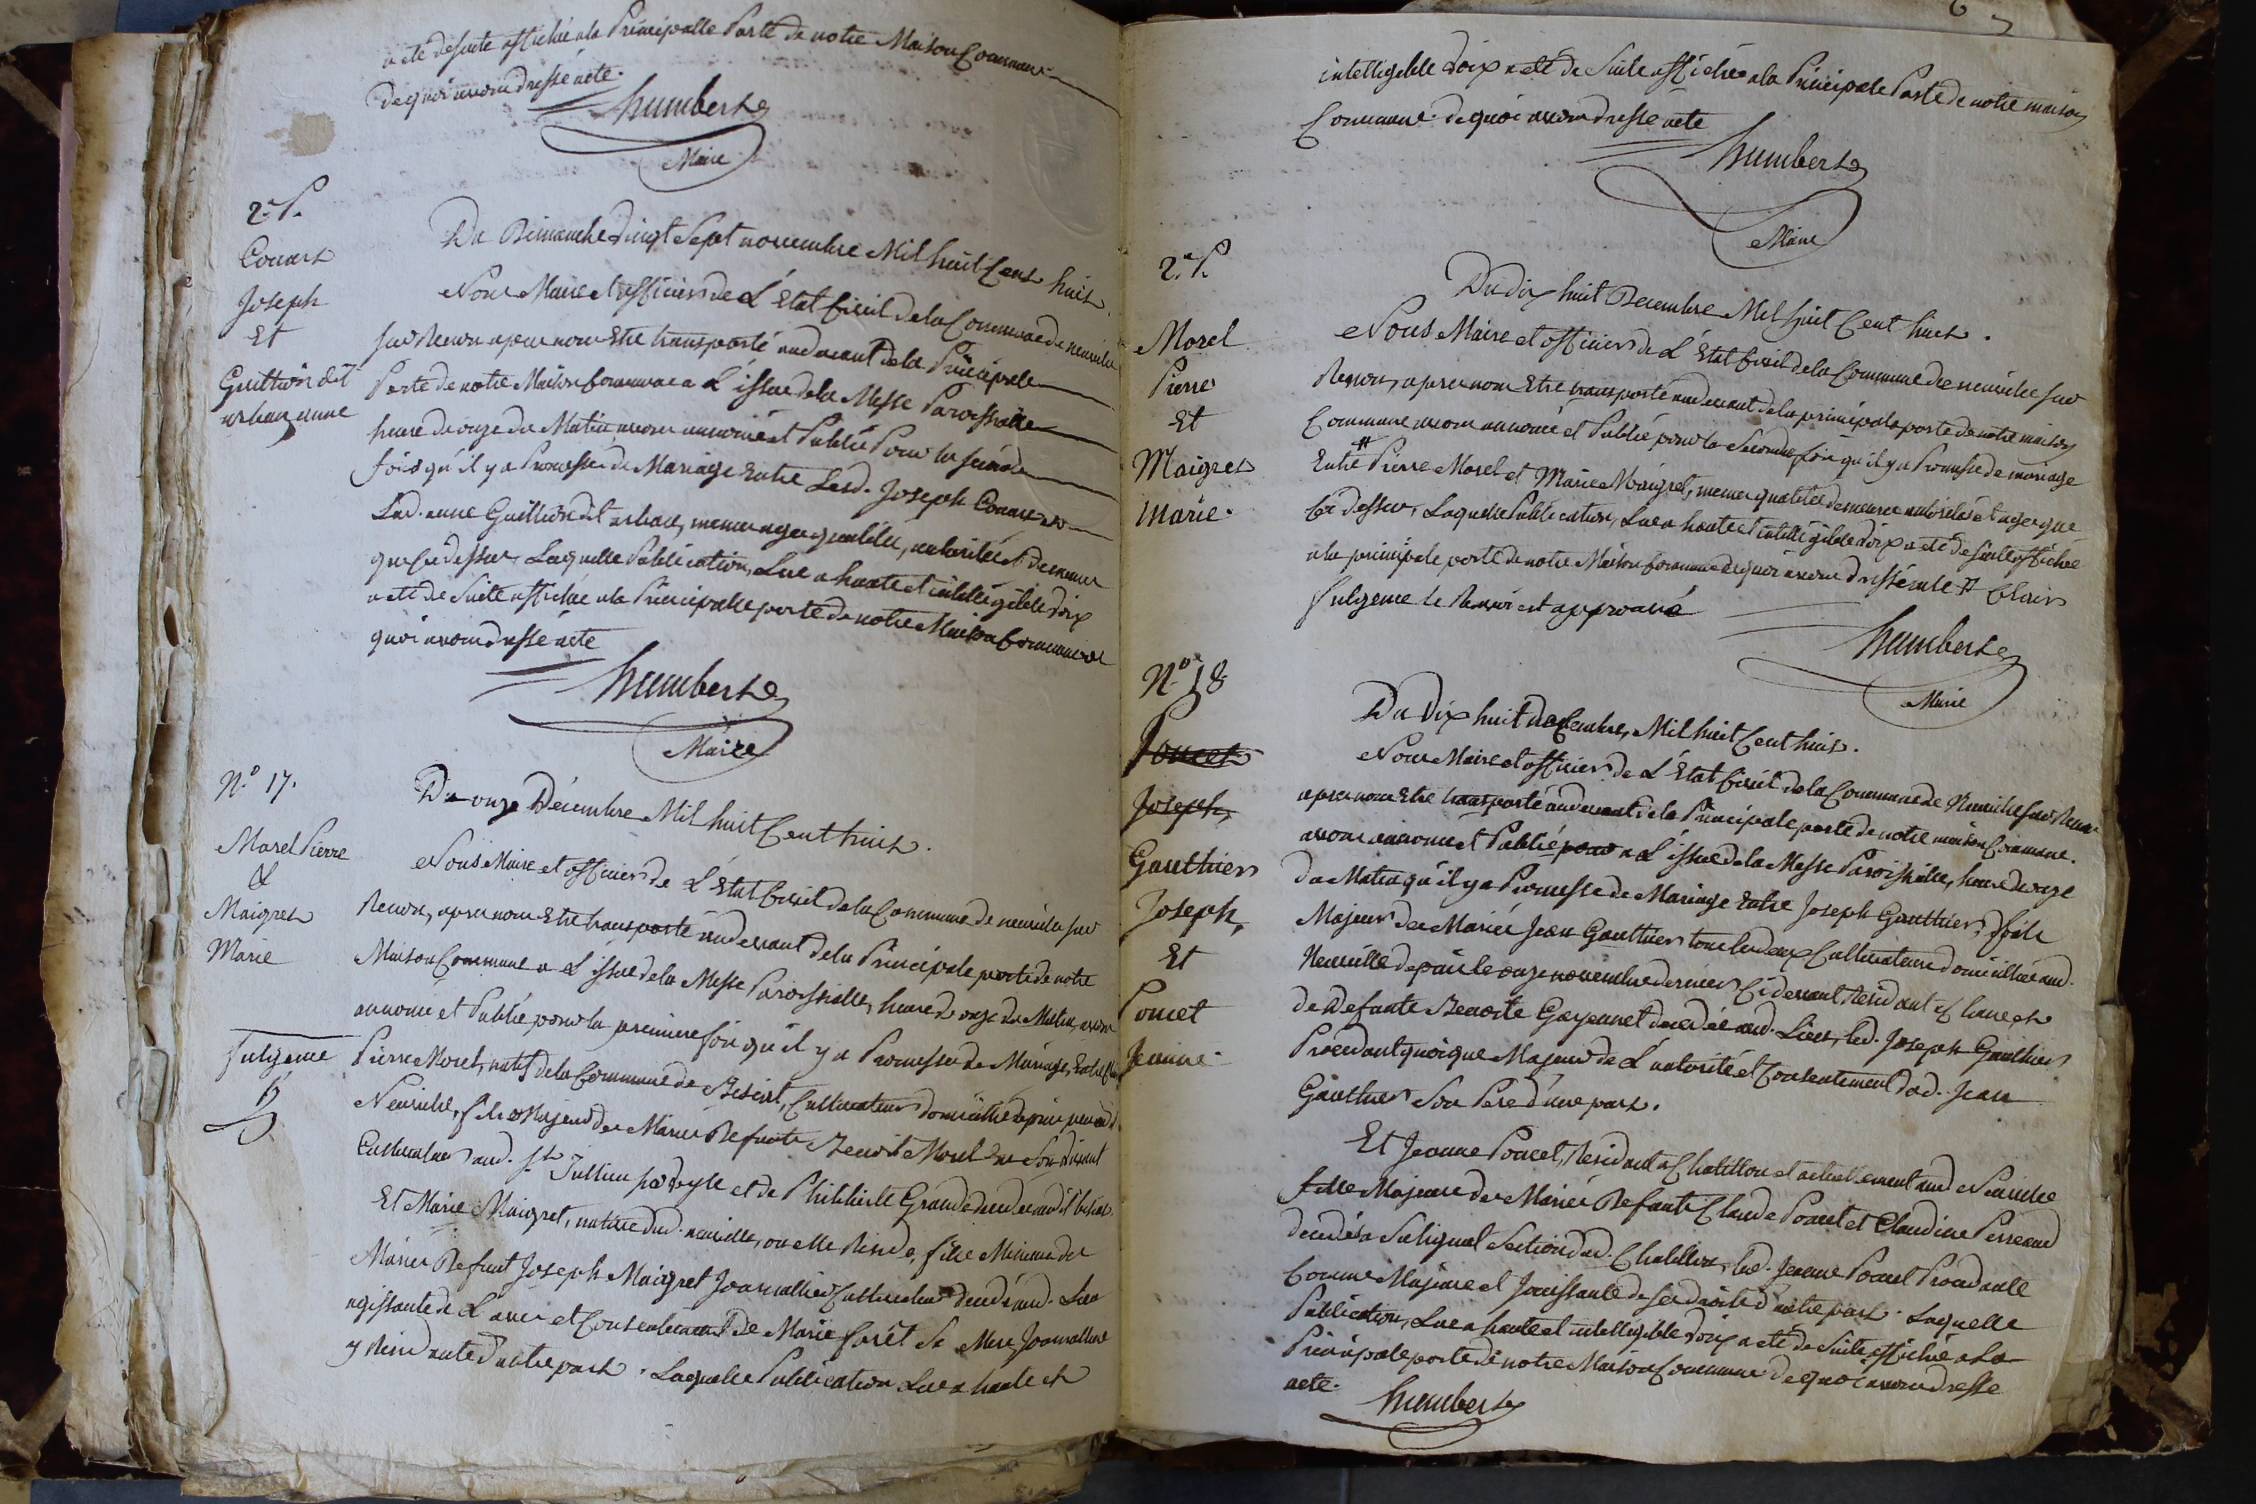 a eté desuite affichée ala Principalle Porte de notre Maison Commune
de quoi avons dressé acte.
humbert
Maire
2.e P.
Couart
Joseph
Et
Guillion dit
urban anne
Du Dimanche vingt Sept novembre Mil huit Cent huit
Nous Maire et officier de L'Etat Civil dela Commune de neuville
sur Renon apres nous Etre transporté audevant dela Principale
Porte de notre Maison Commune a L'issue dela Messe Paroissialle
heure de onze du Matin, avons annoncé et Publié Pour la seconde
fois qu'il y a Promesse de Mariage Entre Led. Joseph Couart et
Lad. anne Guillion dit urban, meme age, qualités, autorités et demeure
que Cy dessus, Laquelle Publication, Lue a haute et intelligible voix
a eté de Suite affichée ala Principalle porte de notre Maison Commune de
quoi avons dressé acte
humbert
Maire
N.o 17.
Morel Pierre
&
Maigret
Marie
fulgence
Du onze Décembre Mil huit Cent huit.
Nous Maire et officier de L'Etat Civil dela Commune de neuville sur
Renon, apres nous Etre transporté audevant dela Principale porte de notre
Maison Commune a L'issue dela Messe Paroissialle, heure de onze du Matin, avons
annoncé et Publié pour la premiere fois qu'il y a Promesse de Mariage, Entre
Pierre Morel, natif dela Commune de, Cultivateur domicillié depuis peu aud.
Neuville, fils Majeur des Mariés Defunts Benoit Morel de Son vivant
Cultivateur aud. S.t Jullien et de Philiberte Grand decedée aud.
Et Marie Maigret, native dud. neuville, ou elle Reside, fille Mineure des
Mariés Defunt Joseph Maigret Journallier Cultivateur decedé aud. Lieu
agissante de L'avis et Consentement de Marie forêt Sa Mere Journalliere
y Residante d'autre part. Laquelle Publication Lue a haute et
intelligible voix a eté de Suite affichée ala Principale Porte de notre maison
Commune de quoi avons dressé acte
humbert
Maire
2.e P.
Morel
Pierre
Et
Maigret
Marie.
Du dix huit Decembre Mil huit Cent huit.
Nous Maire et officier de L'Etat Civil dela Commune de neuville sur
Renon, apres nous Etre transporté audevant dela principale porte de notre maison
Commune avons annoncé et Publié pour la Seconde fois qu'il y a Promesse de mariage
Entre # Pierre Morel et Marie Maigret, meme qualités demeure autorités et ages que
Cy dessus, Laquelle Publication, Lue a haute et intelligible voix a eté de Suite affichée
ala principale porte de notre Maison Commune de quoi avons dressé acte # Clair
fulgence le Renvoi est approuvé
humbert
Maire
N.o 18
Poncet
Joseph,
Gauthier
Joseph,
Et
Poncet
Jeanne.
Du Dix huit decembre, Mil huit Cent huit.
Nous Maire et officier de L'Etat Civil dela Commune de Neuville sur Renon
apres nous Etre transporté audevant dela Principale porte de notre maison Commune.
avons annoncé et Publié pour a L'issue dela Messe Paroissialle, heure de onze
du Matin qu'il y a Promesse de Mariage Entre Joseph Gauthier, fils
Majeur des Mariés Jean Gauthier tous les deux Cultivateurs domicilliés aud.
Neuville depuis le onze novembre dernier Ci devant Residant a
de Defunte Benoite Gayennet decedée aud. Lieu, led. Joseph Gauthier
Procedant quoique Majeur de L'autorité et Consentement dud. Jean
Gauthier Son Pere d'une part.
Et Jeanne Poncet, Residante a Chatillon et actuellement aud Neuville
fille Majeure des Mariés Defunts Claude Poncet et Claudine Perreaud
decedés a Sulignat Section dud. Chatillon, lad. Jeanne Poncet Procedante
Comme Majeure et Jouissante de ses droits d'autre part. Laquelle
Publication, Lue a haute et intelligible voix a eté de Suite affichée a La
Principale porte de notre Maison Commune de quoi avons dressé
acte.
humbert